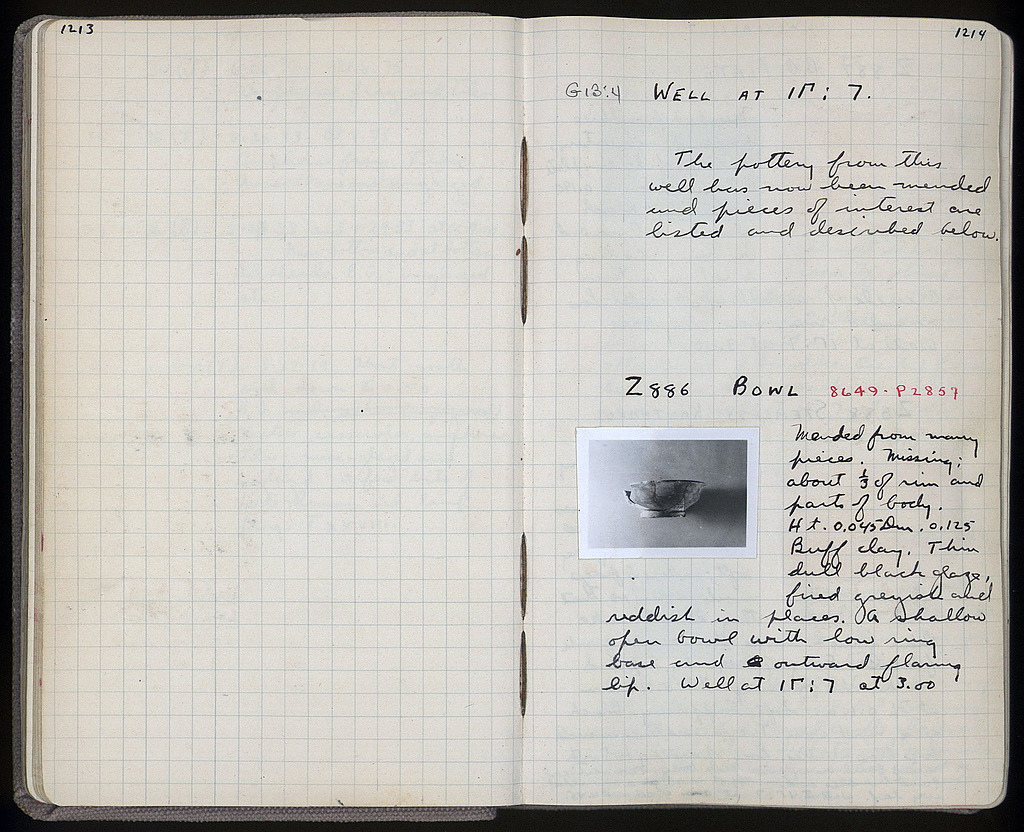 1213
1214
G13:4 WELL AT 1Γ:7.
The pottery from this
well has now been mended
and pieces of interest are
listed and described below.
Z886 BOWL 8649-P2857
Mended from many
pieces. Missing;
about 1/3 of rim and
parts of body.
Ht. 0.045 Dm. 0.125
Buff clay. Thin
dull black glaze,
fired greyish and
reddish in places. A shallow
open bowl with low ring
base and outward flaring
lip. Well at 1Γ:7 at 3.00